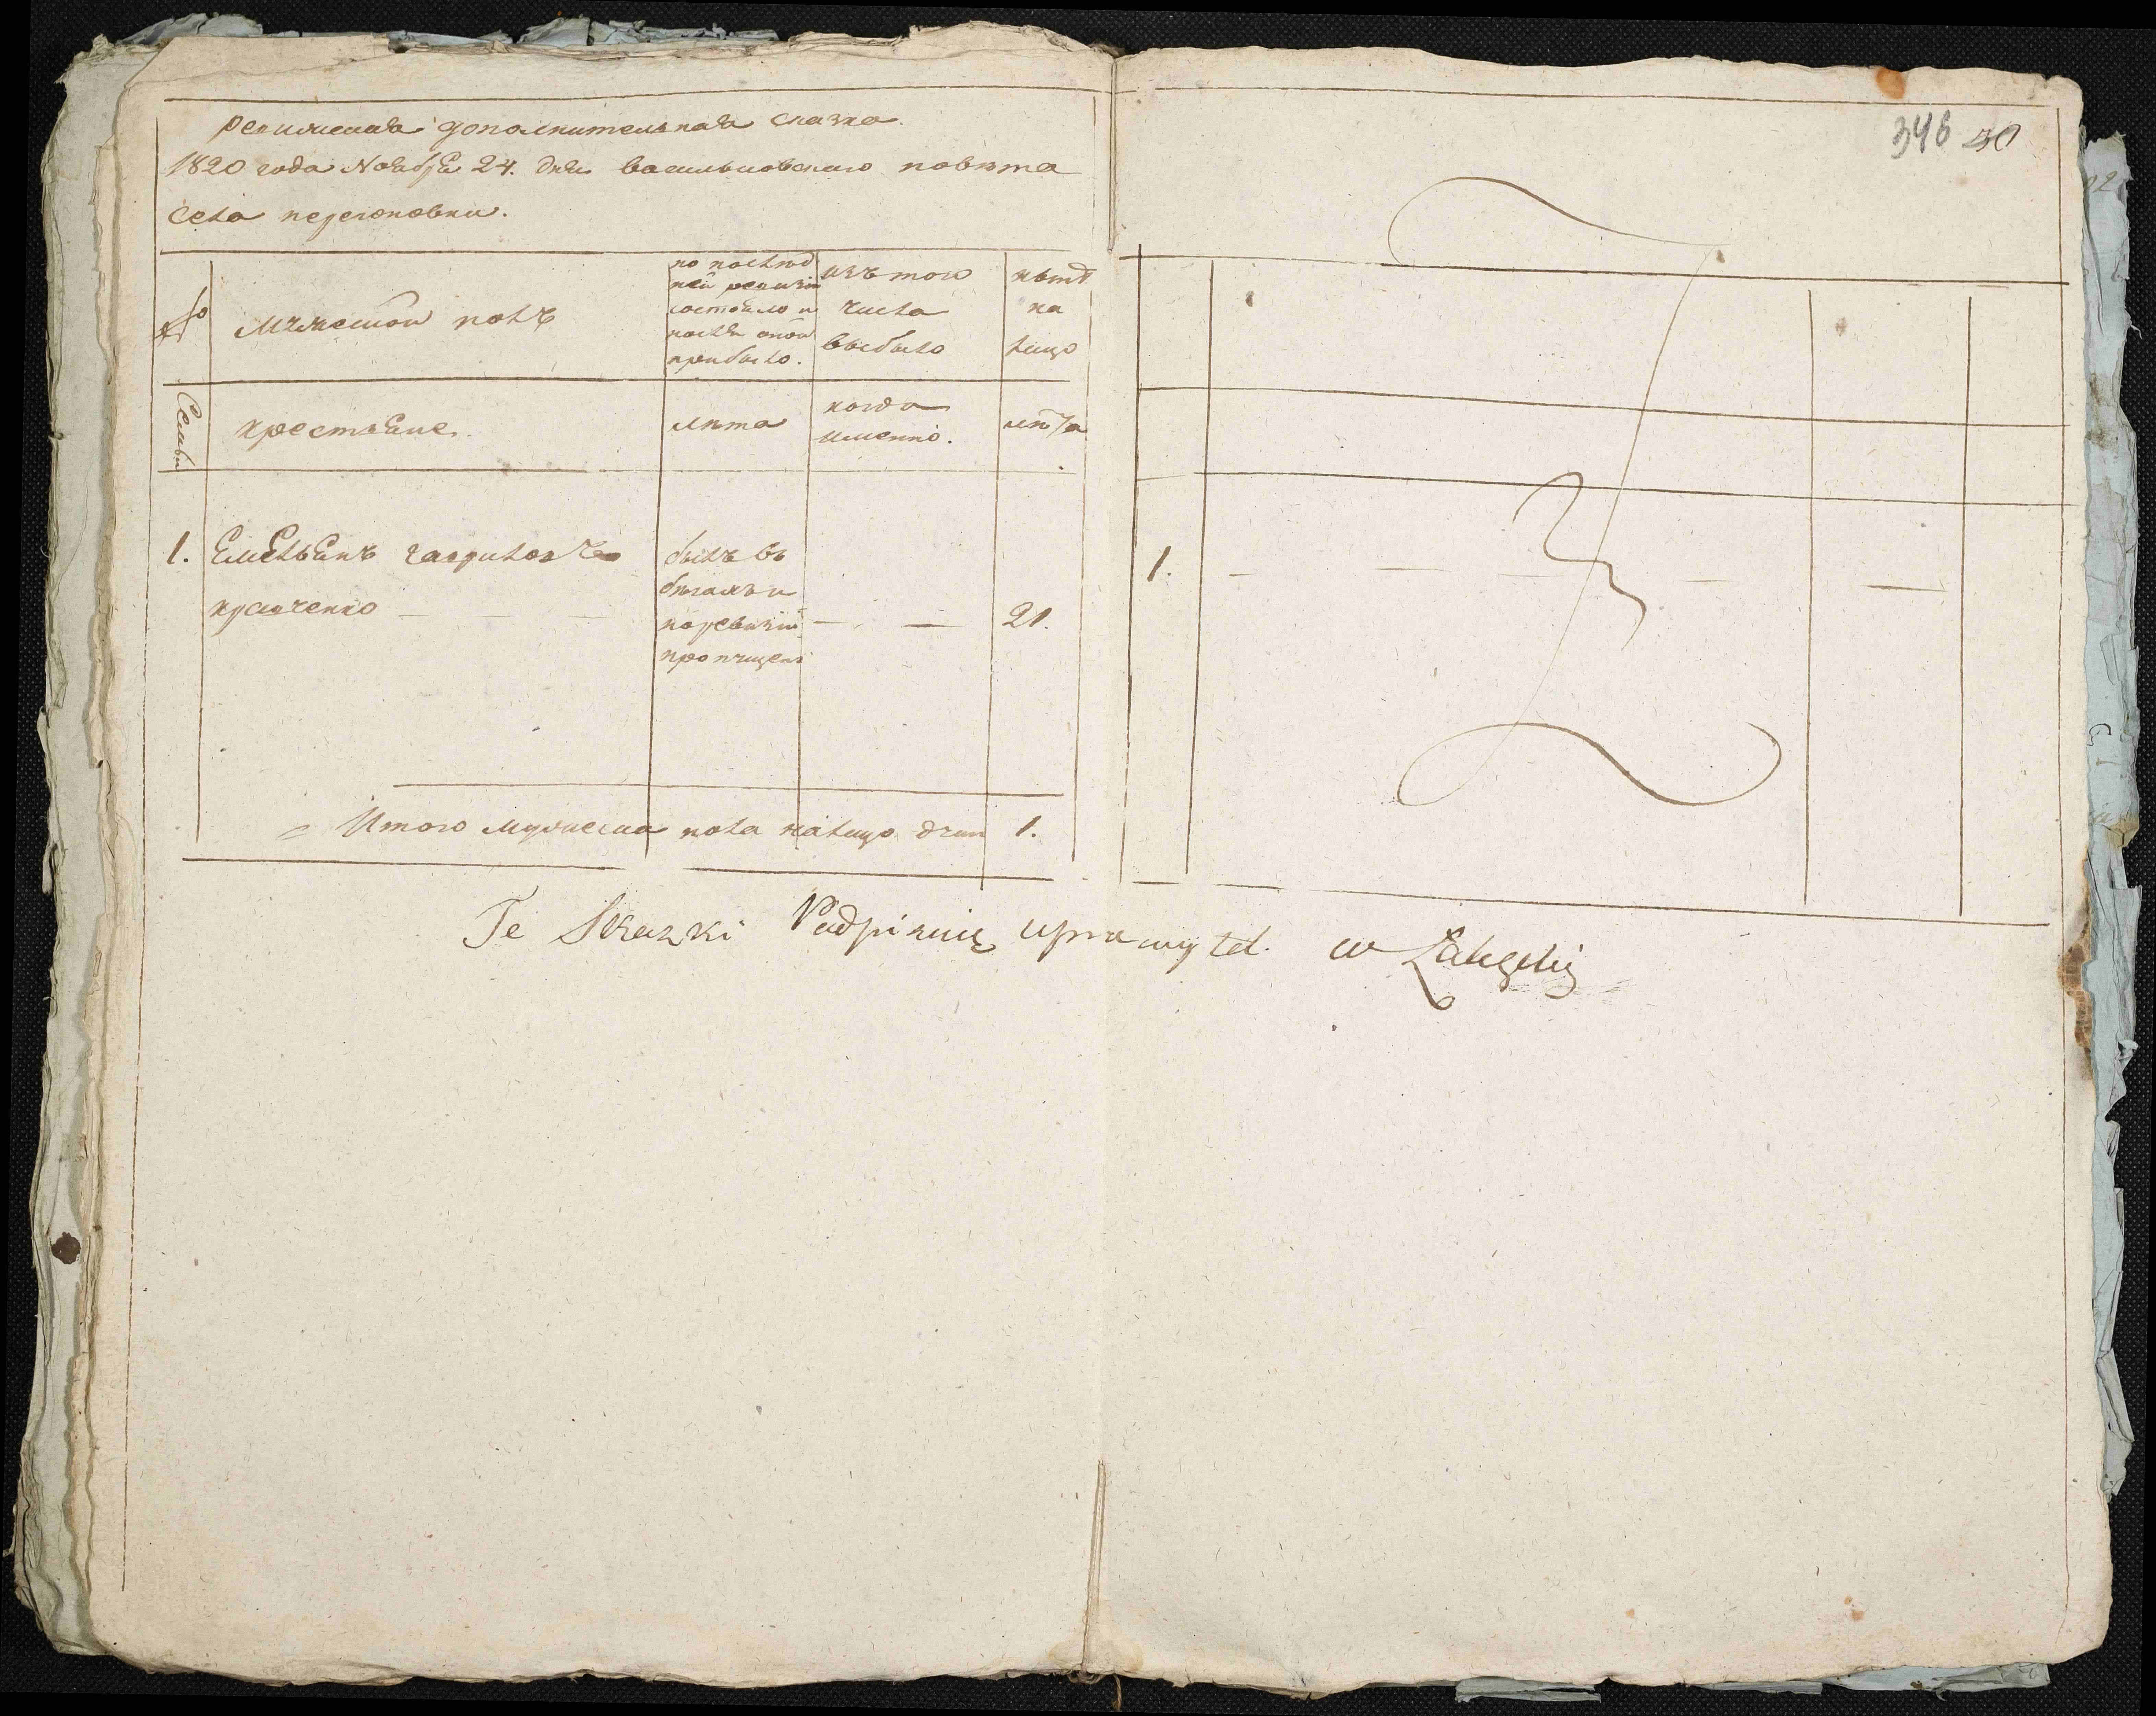 Ревижская дополнительная сказка.
1820 года Ноября 24. дня васильковского повѣта
Села перегоновки.
346 30
№
Мужеской полъ
по послѣд
ней ревизіи
состояло и
послѣ оной
прибыло.
изъ того
числа
выбыло
нынѣ
на
лицо
Семьи
крестьяне.
лѣта
когда
именно.
лѣта
1. Емельянъ гавриловъ
кравченко
былъ въ
бѣгахъ и
поревизіи
пропущенъ
21.
1.
Итого мужеска пола налицо душ 1.
Te Skazki Podpisuię